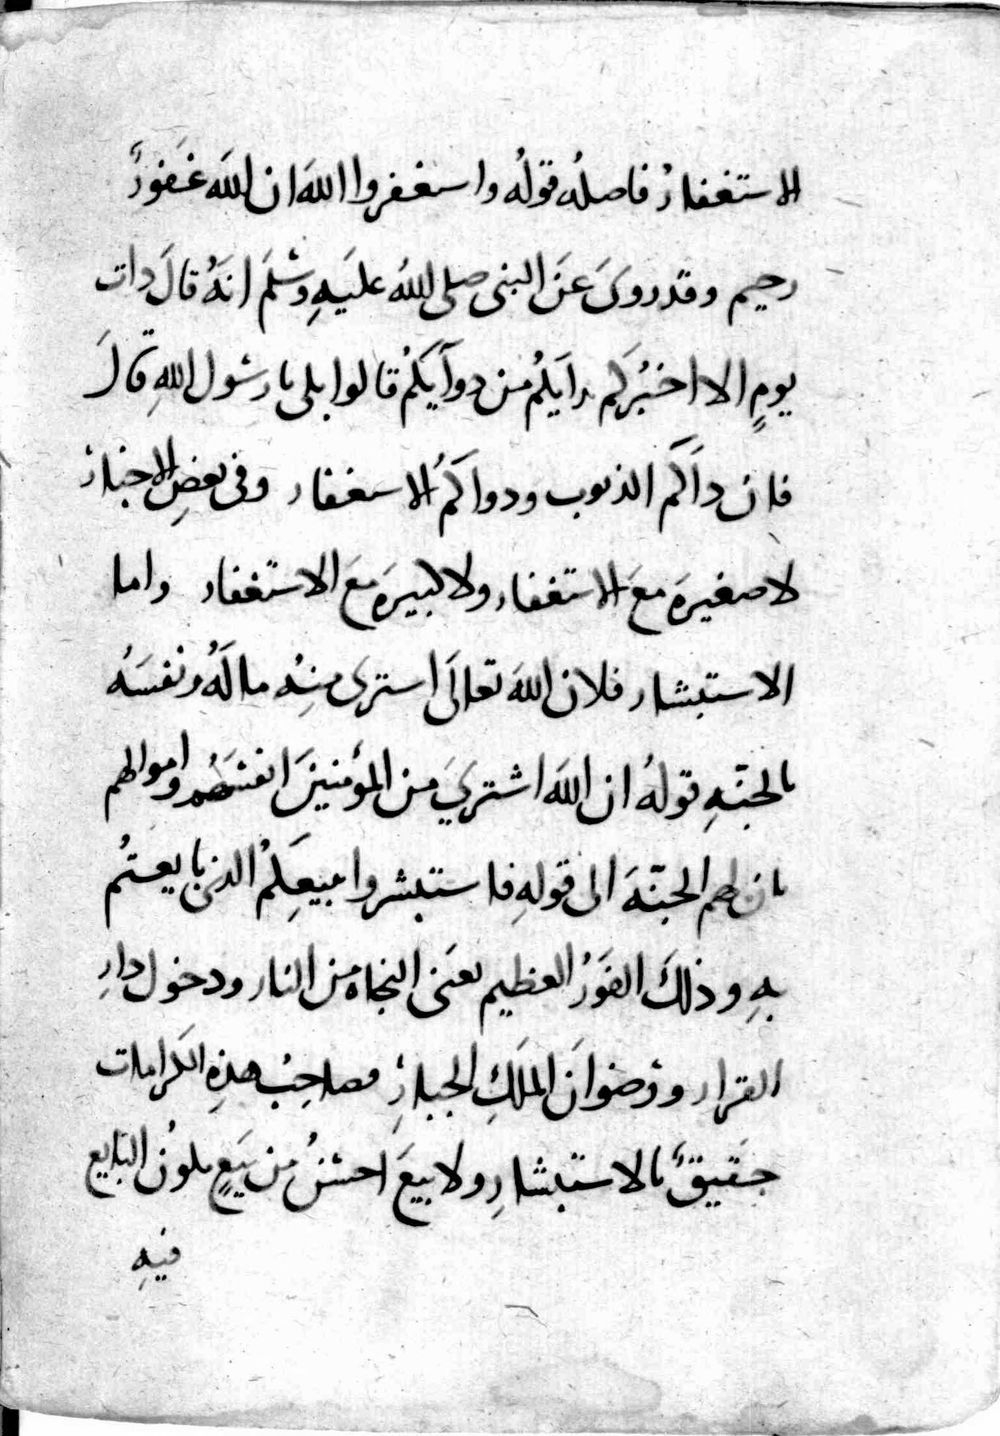 الاستغفارُ فاصلُه قولُه واستغفروا اللهَ ان اللهَ غَفورٌ
رحيم وقد روىَ عَنَ النبى صلى اللهُ عليَهِ وسَلمَ انهُ قالَ دات
يومٍ الا اخبُركَم بدايكُم من دوآيكُم قالوا بلى يا رسول اللهِ قالَ
فان دآكم الذنوب ودواكمُ الاستغفار وفى بعضِ الاخبار
لا صغيرَه معَ الاستغفار ولا كبيرَه معَ الاستغفار واما
الاستبشار فلان اللهَ تعالَى استرى منِهُ مالَهُ ونفسَهُ
بالجنّهِ قولهُ ان اللهَ اشتريَ من المؤمنينَ انفسَهُم واموالهم
بان لهم الجنّهَ الى قولهِ فاستبشروا ببيعِكمُ الذى بايعتُم
بهِ وذلكَ الفَوزُ العظيم يعنَى النجاه من النار ودخول دارِ
القرار ورُضوانَ الملَكِ الجبارِ فصاحِبُ هذِهِ الكرامات
حَقيقٌ بالاستبشارِ ولا بيعَ احسَنُ من بَيعٍ يكونُ البايع
فيهِ